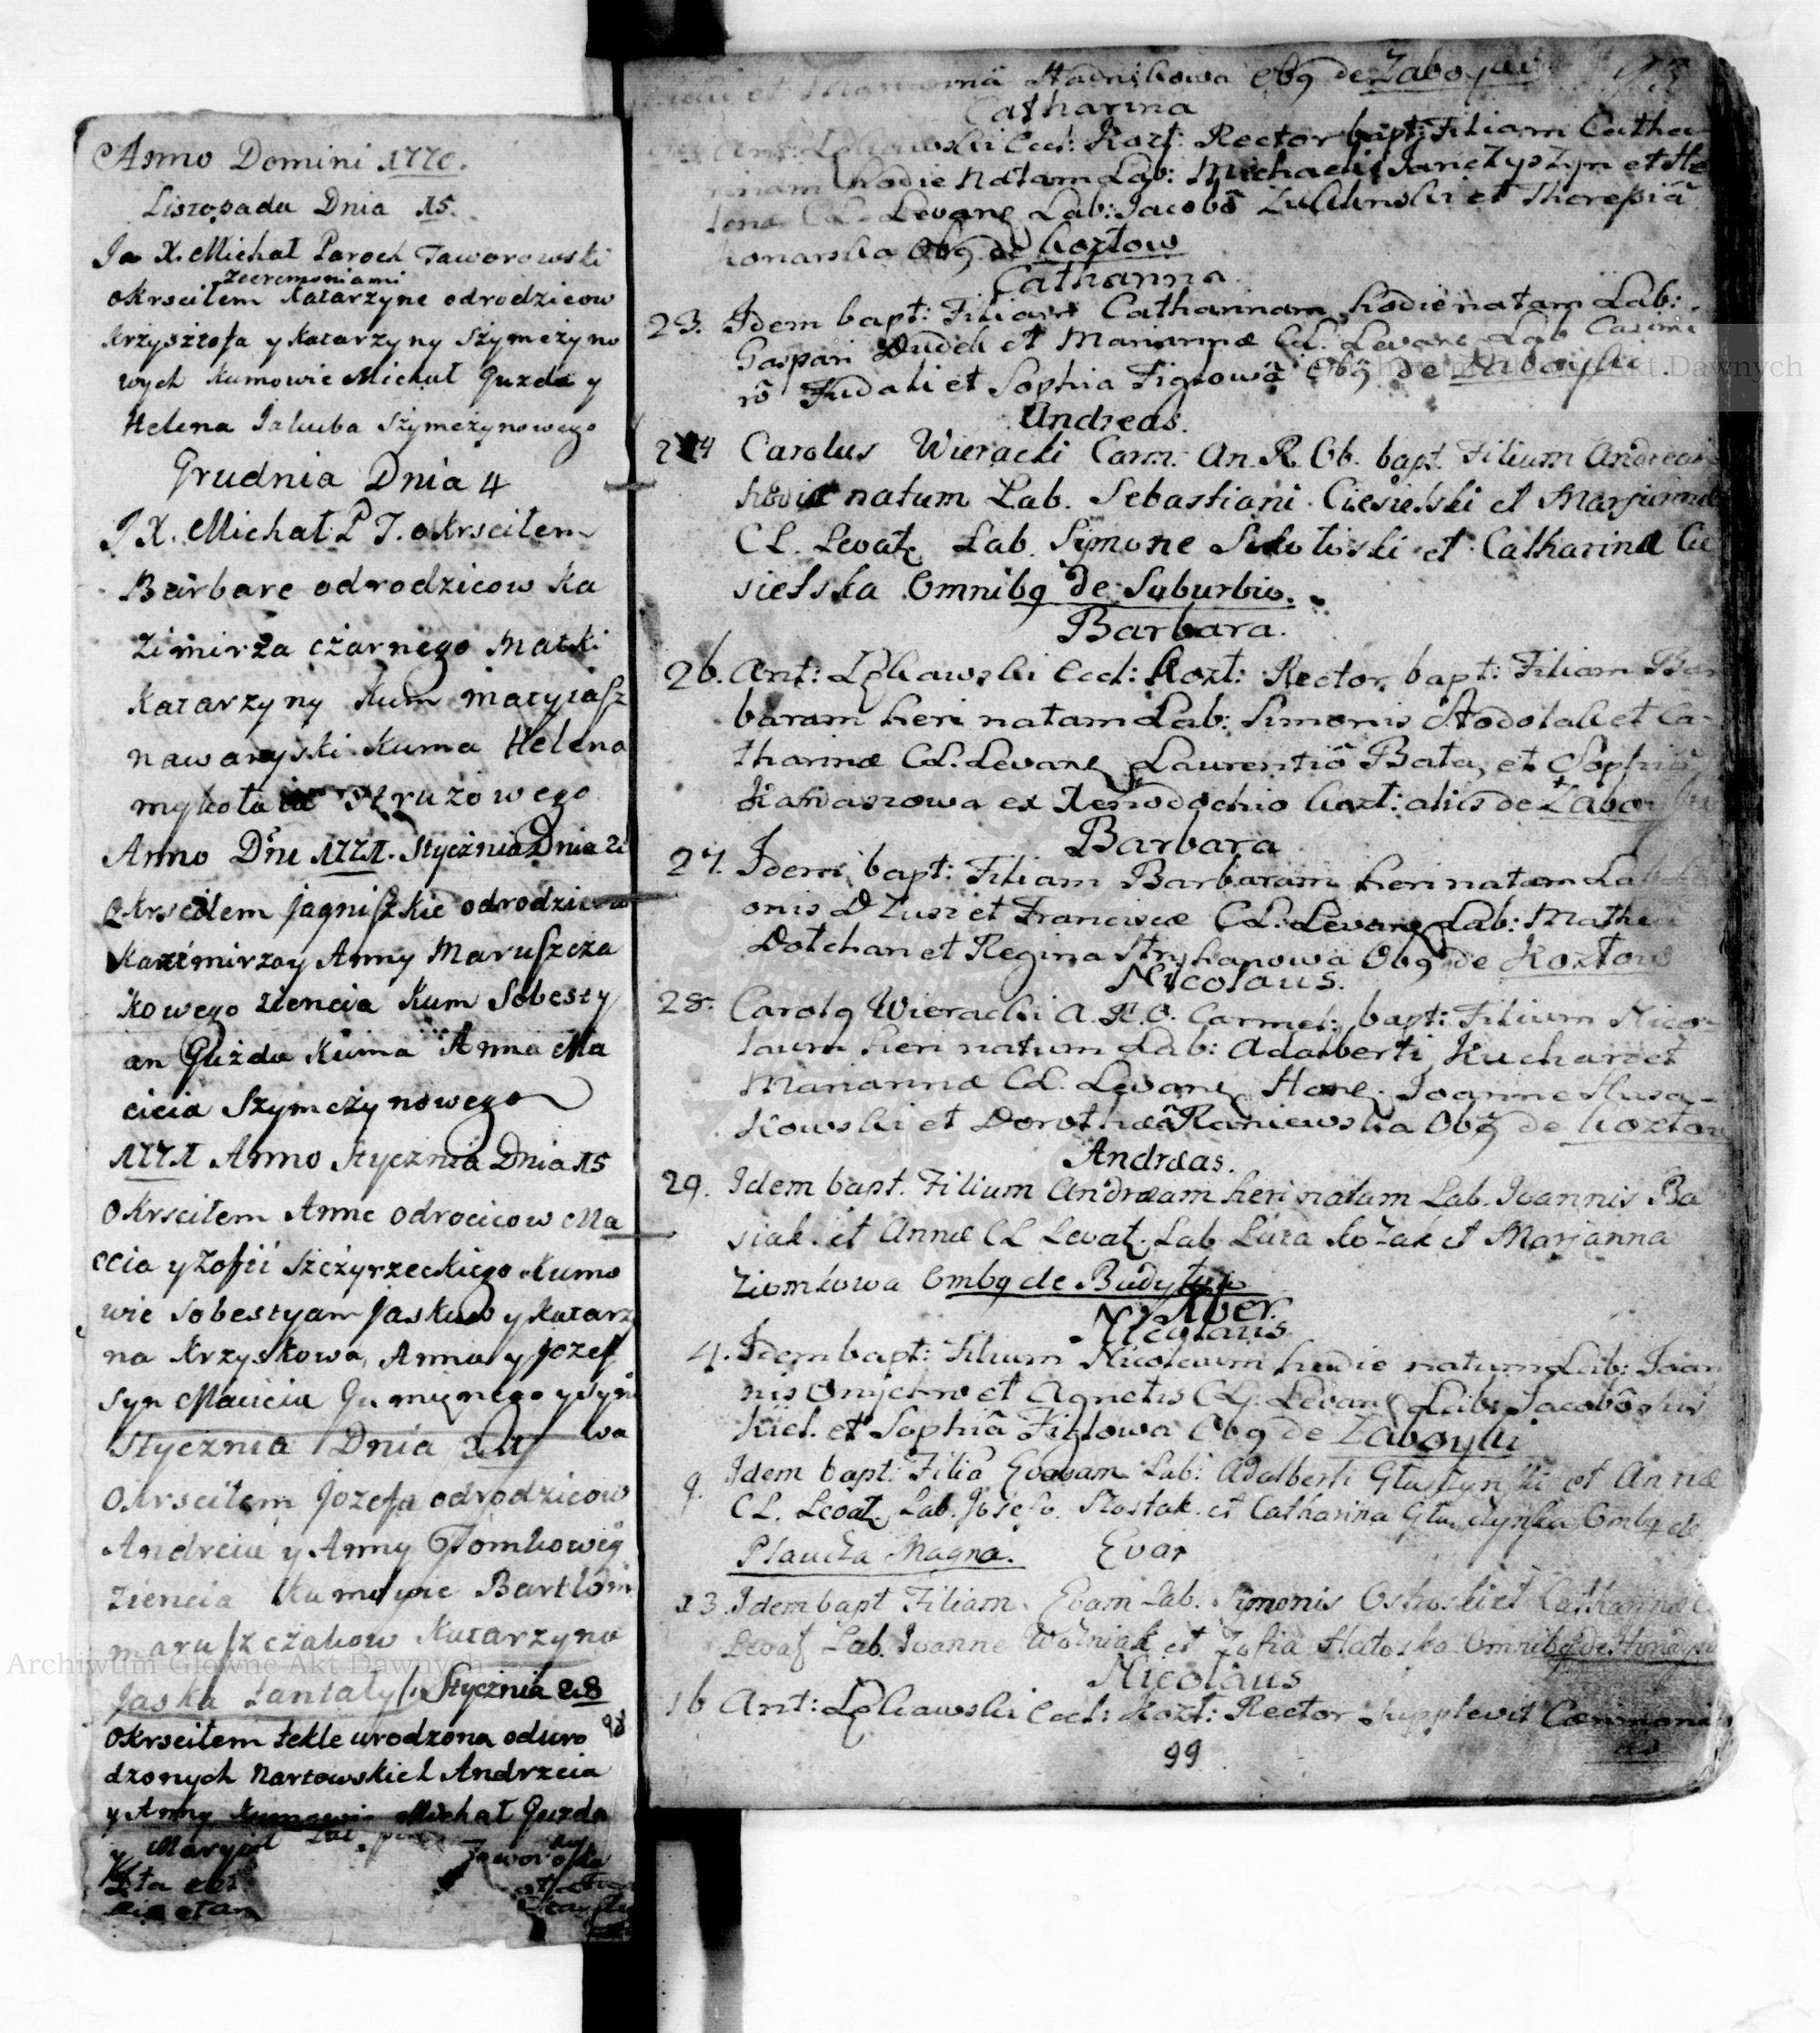 Anno Domini 1770.
Listopada Dnia 15.
Ja X. Michał Paroch Jaworowski
zceremoniami
okrsciłem Katarzyne odrodzicow
Krzysztofa y Katarzyny Szymczyno
wych Kumowie Michał Guzda y
Helena Jakuba Szymczynowego
Grudnia Dnia 4
J X. Michał P J. okrsciłem
Barbare odrodzicow Ka
zimirza czarnego Matki
Katarzyny Kum Matyiasz
nawaryski Kuma Helena
mykołaia Struzowego
Anno Dni 1771. Stycznia Dnia 2
Okrsciłem Jagniszkie odrodzicow
Kazimirza y Anny Maruszcza
kowego zięncia Kum Sobesty
an Guzda Kuma Anna Ma
cicia Szymczynowego
1771 Anno Stycznia Dnia 15
Okrsciłem Anne odrocicow Ma
ccia y Zofii Szczyrzeckiego Kumo
wie Sobestyan Jaskuw y Katarz
na Krzyskowa, Anna y Jozef
syn Maicia y syno
wa
Stycznia Dnia
Okrsciłem Jozefa odrodzicow
Andrcia y Anny Tomkowey
Ziencia Kumowie Bartłom
maruszczakow Katarzyna
Jaska Stycznia 28
98
Okrsciłem tekle urodzona oduro
dzonych Nartowskich Andrzcia
y Anny Kumowie Michał Guzda
y
et Marianna Stadnikowa Obq de Zaboyki
Catharina
Ant: Łękawski Eccl: Kozł: Rector bapt: Filiam Catha
rinam hodie Natam Lab: Michaelis Janczyszyn et He
lena CL. Levane Lab: Jacobô Zuklinski et Theresiâ
Konarska Obq de Kozłow
Catharina
23. Idem bapt: Filiam Catharinam hodie natam Lab:
Gaspari Dudek et Mariannæ CL. Levane Lab Casimi
rô Fudali et Sophia Figlowâ Obq de Zaboyki
Andreas.
24 Carolus Wieracki Carm. An. R. Ob. bapt. Filium Andream
hodie natum Lab. Sebastiani Ciesielski et Marjannæ
CL. Levate Lab. Symone Sokołoski et Catharina Cie
sielska Omnibq de Suburbio.
Barbara.
26. Ant: Łękawski Eccl: Kozł: Rector bapt: Filiam Bar
baram heri natam Lab: Simonis Stodolak et Ca-
tharinæ CL. Levane Laurentiô Bata, et Sophia
ex Xenodochio Kozł: aliis de Zaboyki
Barbara
27. Idem bapt: Filiam Barbaram heri natam Lab:
onis Dzus et Franciscæ CL. Levane Lab: Mathe
Dołchan et Regina Stryhanowa Obq de Kozłow
Nicolaus.
28. Carolq Wieracki A. R. O. Carmel: bapt: Filium Nico-
laum heri natum Lab: Adalberti Kucharz et
Mariannæ CL. Levane Hone. Joanne Husa-
kowski et Dorotheâ Raniewska Obq de Kozłow
Andræas.
29. Idem bapt. Filium Andræam heri natam Lab. Ioannis Ba
siak. et Annæ CL Levate Lab Luca Kozak et Marjanna
Ziomkowa Ombq de Budyłow
Xber.
Nicolaus
4. Idem bapt: Filium Nicolaum hodie natum Lab: Joan
nis Onychno et Agnetis CL. Levane Lab: Jacobô
Kiel. et Sophiâ Figlowa Obq de Zaboyki
9. Idem bapt: Filiâ Evavam Lab: Adalberti Głuszynski et Annæ
CL. Levat. Lab. Josefo. Szostak. et Catharina Ombq de
Płaucza Magna. Evar
13. Idem bapt Filiam Evam Lab. Symonis Ostroski et Catharinæ C
Levat Lab. Ioanne Woźniak et Zofia Omnibq de
Nicolaus
16 Ant: Łękawski Eccl: Kozł: Rector supplevit Cæremoni
99
Archiwum Główne Akt Dawnych
Archiwum Główne Akt Dawnych